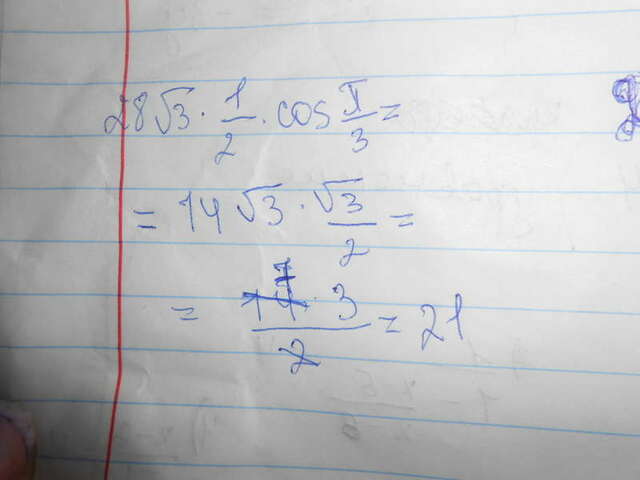 28√3 · 1/2 · cos π/3 =
= 14√3 · √3/2 =
= 14 7 · 3 / 2 = 21